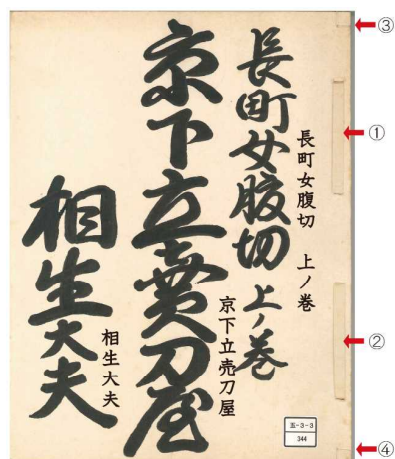 長町女腹切上ノ巻
長町女腹切 上ノ巻
京下立賣刀屋
京下立売刀屋
相生大夫
相生大夫
五-3-3
344
③
①
②
④